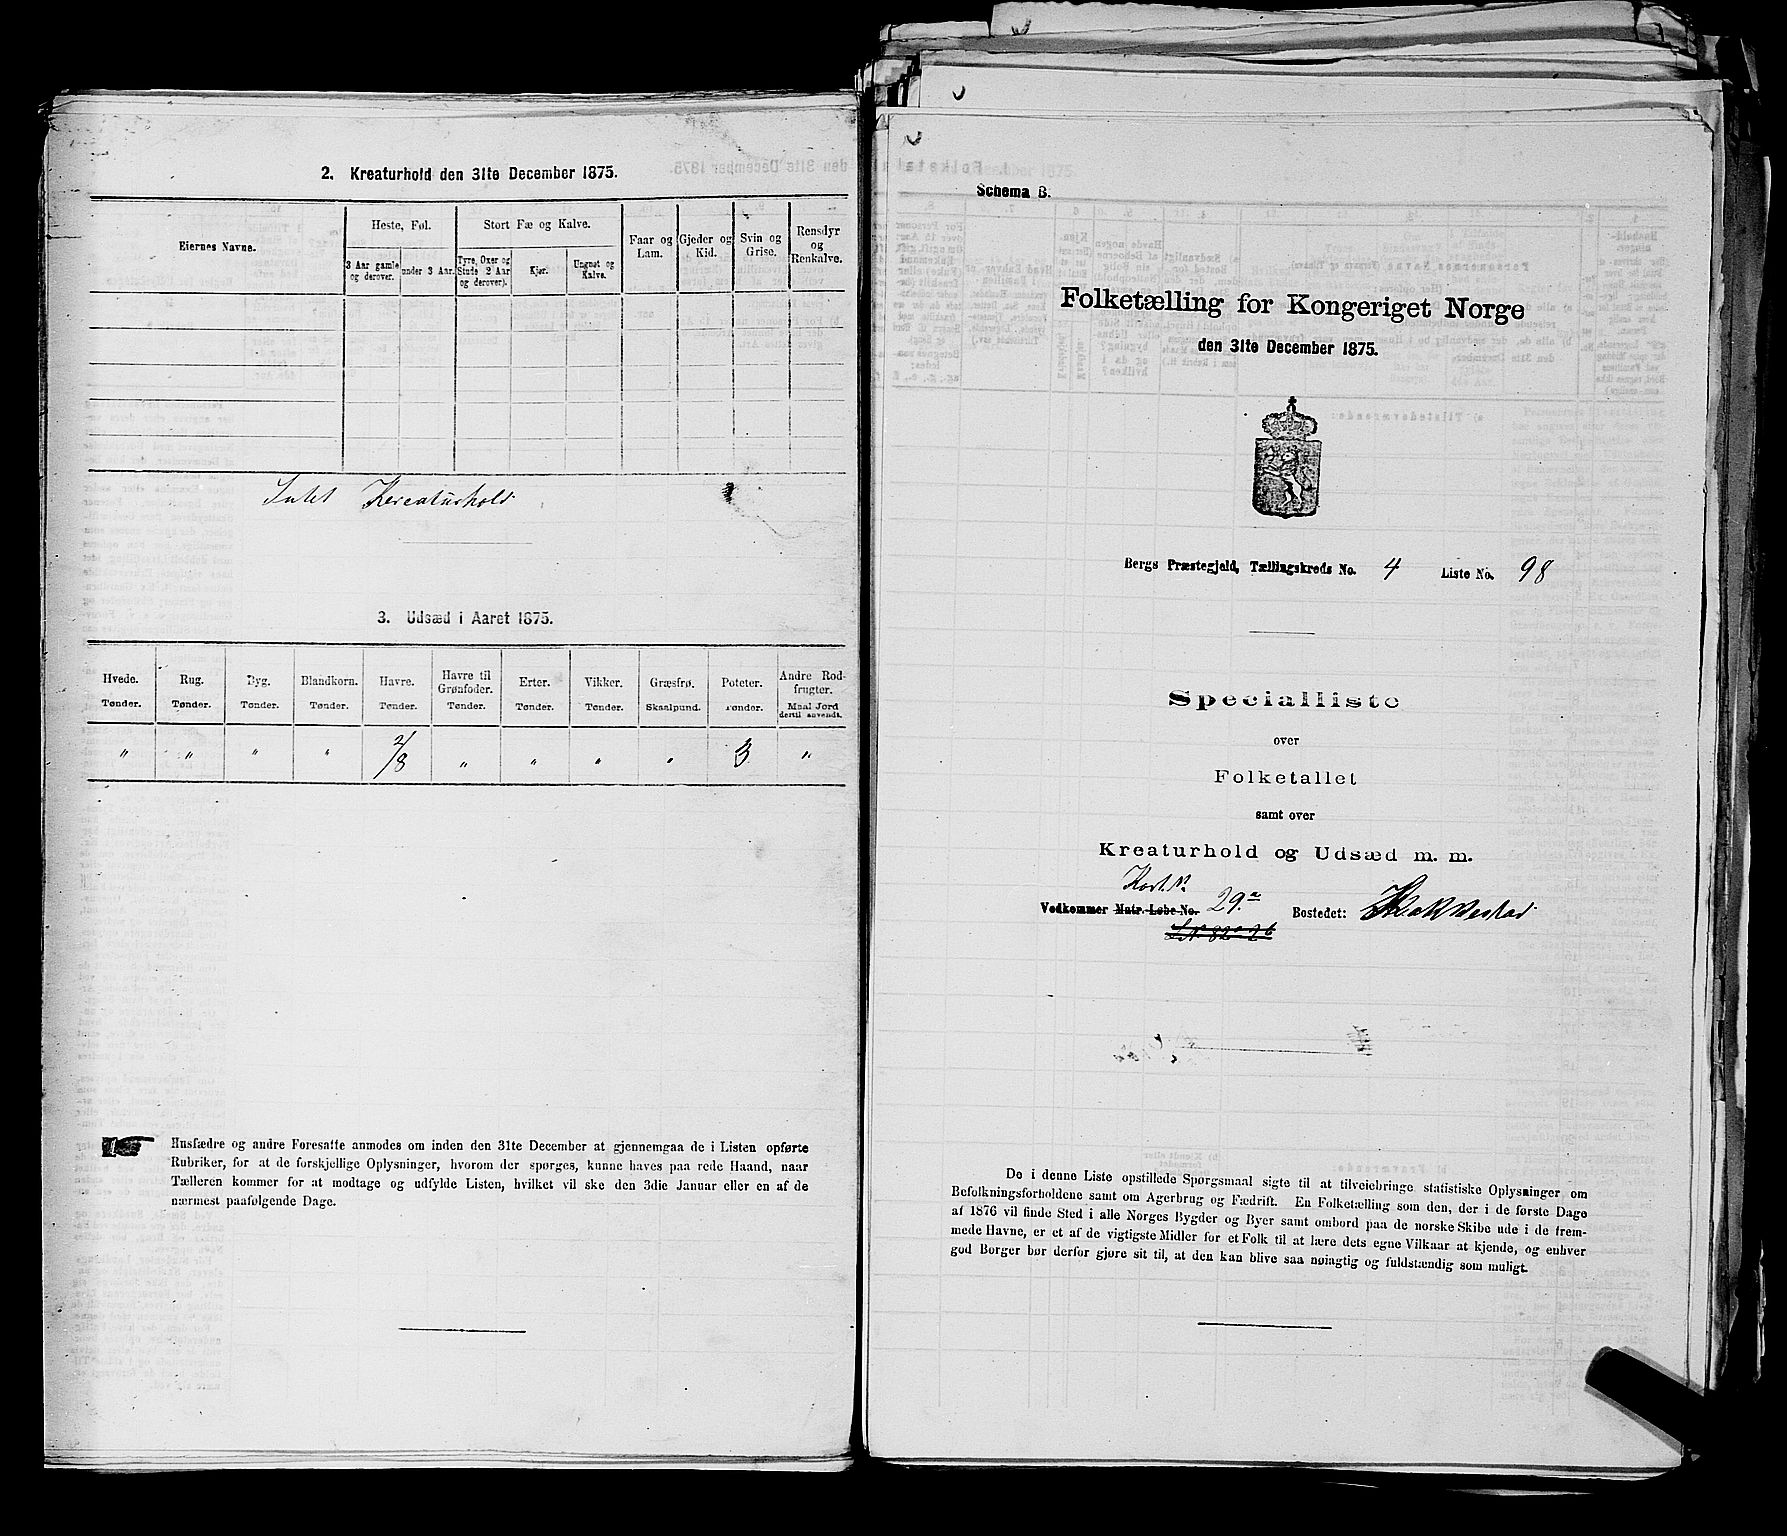 2. Kreaturhold den 31te December 1875.
Eiernes Navne.
Heste, Føl.
3 Aar gamle og derover.
under 3 Aar.
Stort Fæ og Kalve.
Tyre, Oxer og Stude 2 Aar og derover).
Kjør.
Ungnøt og Kalve.
Faar og Lam.
Gjeder og Kid.
Svin og Grise.
Rensdyr og Renkalve.
Intet Kreaturhold
3. Udsæd i Aaret 1875.
Hvede. Rug. Byg. Blandkorn. Havre. Havre til Grønfoder. Erter. Vikker. Græsfrø. Poteter. Andre Rodfrugter.
Tønder. Tønder. Tønder. Tønder. Tønder. Tønder. Tønder. Tønder. Skaalpund. Tønder. Maal Jord dertil anvendt.
" " " " 2/8 " " " " 3 "
Husfædre og andre Foresatte anmodes om inden den 31te December at gjennemgaa de i Listen opførte
Rubriker, for at de forskjellige Oplysninger, hvorom der spørges, kunne haves paa rede Haand, naar
Tælleren kommer for at modtage og udfylde Listen, hvilket vil ske den 3die Januar eller en af de
nærmest paafølgende Dage.
Schema B.
Folketælling for Kongeriget Norge
den 31te December 1875.
Bergs Præstegjeld, Tællingskreds No. 4 Liste No. 98
Specialliste
over
Folketallet
samt over
Kreaturhold og Udsæd m. m.
Kort N.
Vedkommer Matr.-Løbe-No. 29.a Bostedet:
De i denne Liste opstillede Spørgsmaal sigte til at tilveiebringe statistiske Oplysninger om
Befolkningsforholdene samt om Agerbrug og Fædrift. En Folketælling som den, der i de første Dage
af 1876 vil finde Sted i alle Norges Bygder og Byer samt ombord paa de norske Skibe ude i de frem-
mede Havne, er et af de vigtigste Midler for et Folk til at lære dets egne Vilkaar at kjende, og enhver
god Borger bør derfor gjøre sit til, at den kan blive saa nøiagtig og fuldstændig som muligt.